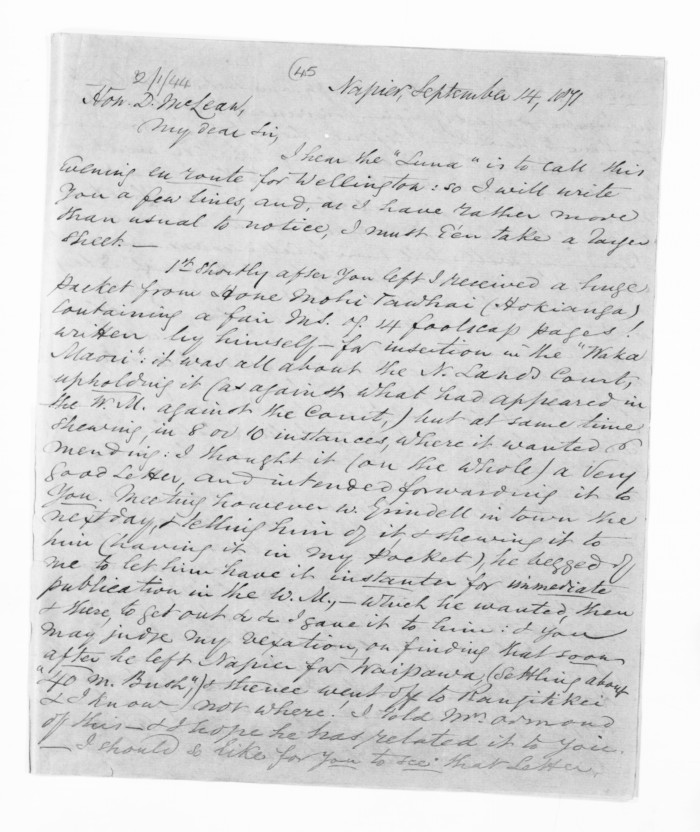 45
2/1/44
Napier, September 14, 1871
Hon. D. McLean,
My dear Sir,
I hear the "Luna" is to call this
Evening en route for Wellington: so I will write
You a few lines, and, as I have rather more
than usual to notice, I must e'en take a larger
sheet. —
1st. Shortly after You left I received a huge
Packet from Hone Mohi Tawhai (Hokianga)
containing a fair Ms. of 14 foolscap pages!
written by himself – for insertion in the "Waka
Maori": it was all about the N. Lands Court,
upholding it (as against what had appeared in
the W. M. against the Court,) but at same time
shewing, in 8 or 10 instances, where it wanted
mending: I thought it (on the whole) a very
good Letter, and intended forwarding it to
You. Meeting however w. Grindell in town the
next day, & telling him of it & shewing it to
him (having it in my Pocket), he begged of
me to let him have it instanter for immediate
publication in the W. M., – which he wanted, then
& there, to get out &c &c I gave it to him: & you
may judge my vexation, on finding that soon
after he left Napier for Waipawa, (settling about
"40 M. Bush",) & thence went off to Rangitikei
& I know not where! I told Mr. Ormond
of this – & I hope he has related it to You.
– I should like for You to see that Letter,